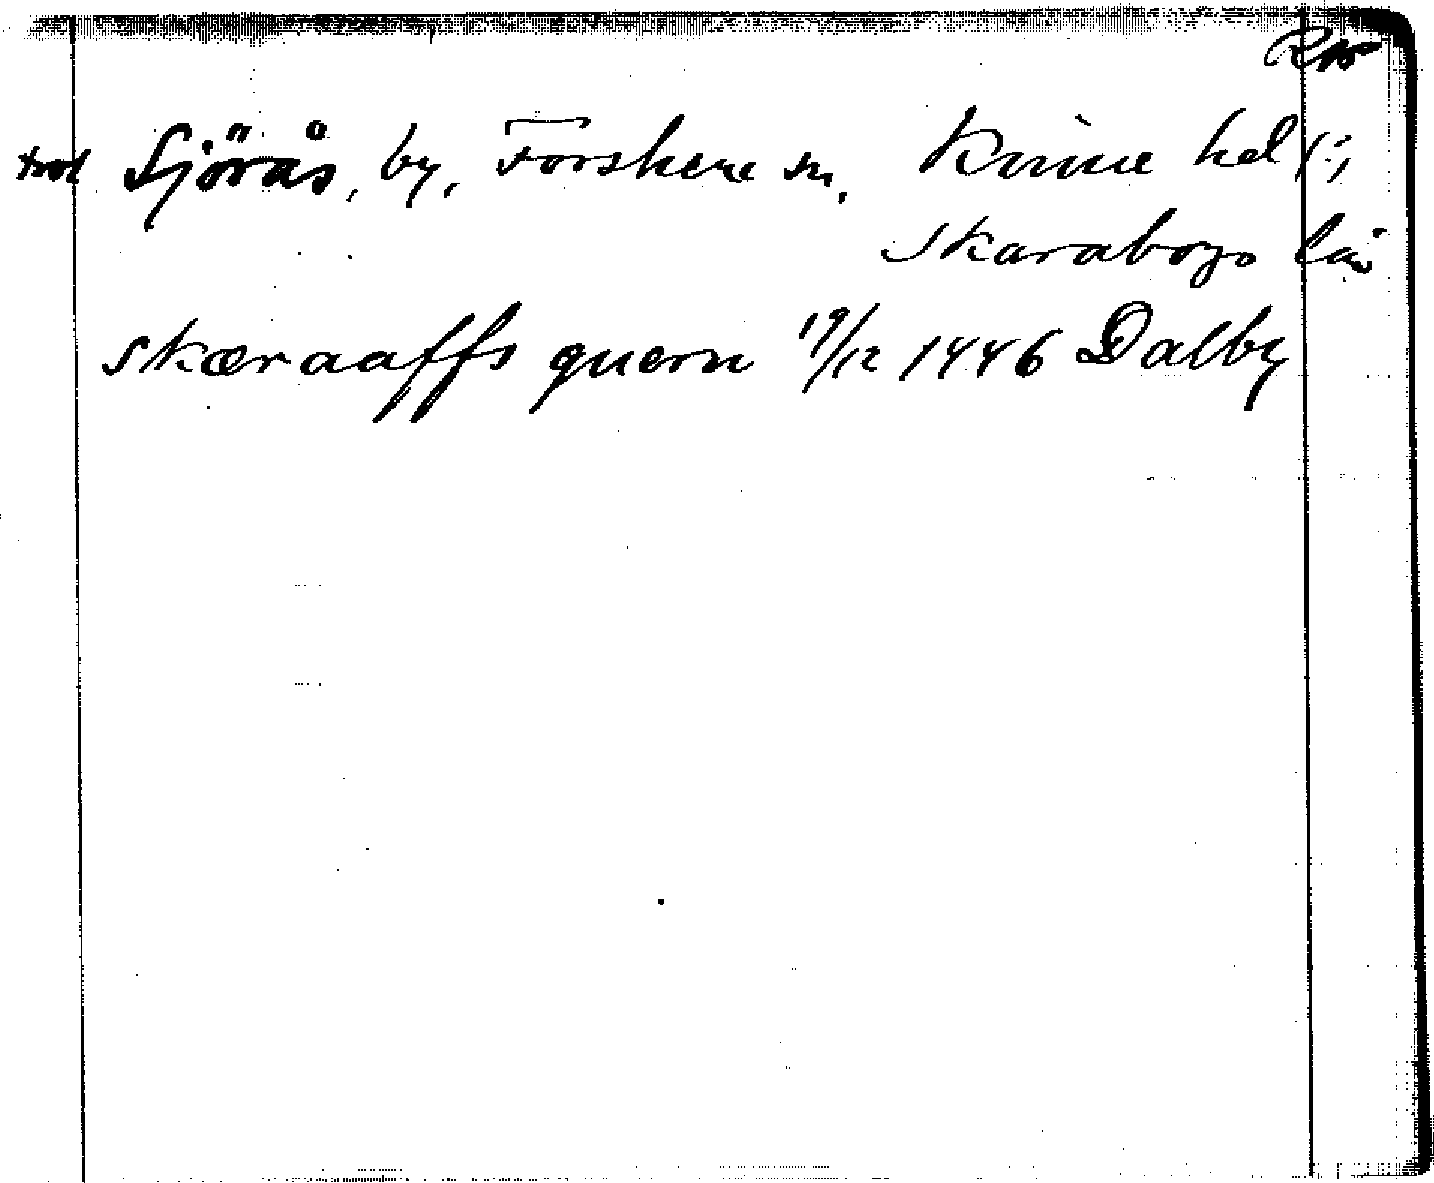 trol Sjörås, by, Forshem sn, Kinne hd (?),
Skaraborgs län
skæraaffs quern 19/12 1446 Dalby